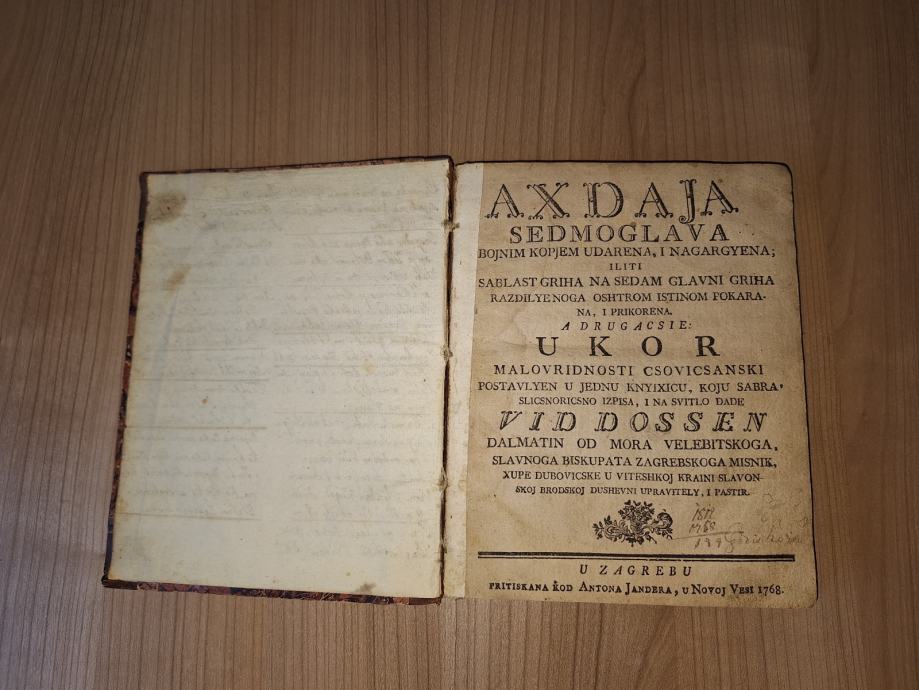 AXDAJA
SEDMOGLAVA
BOJNIM KOPJEM UDARENA, I NAGARGYENA;
ILITI
SABLAST GRIHA NA SEDAM GLAVNI GRIHA
RAZDILYENOGA OSHTROM ISTINOM POKARA-
NA, I PRIKORENA.
A DRUGACSIE:
UKOR
MALOVRIDNOSTI CSOVICSANSKI
POSTAVLYEN U JEDNU KNYIXICU, KOJU SABRA,
SLICSNORICSNO IZPISA, I NA SVITLO DADE
VID DOSSEN
DALMATIN OD MORA VELEBITSKOGA,
SLAVNOGA BISKUPATA ZAGREBSKOGA MISNIK,
XUPE DUBOVICSKE U VITESHKOJ KRAINI SLAVON-
SKOJ BRODSKOJ DUSHEVNI UPRAVITELY, I PASTIR.
1768
U ZAGREBU
PRITISKANA KOD ANTONA JANDERA, U NOVOJ VESI 1768.